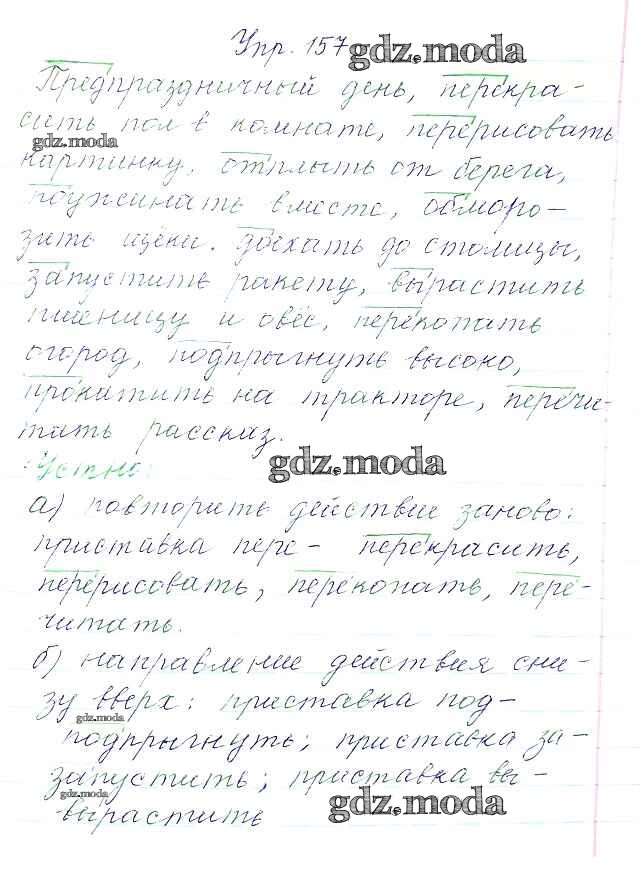 Упр. 157 gdz.moda
Предпраздничный день, перекра-
сить пол в комнате, перерисовать
gdz.moda
картинку, отплыть от берега,
поужинать вместе, обморо-
зить щёки. доехать до столицы,
запустить ракету, вырастить
пшеницу и овёс, перекопать
огород, подпрыгнуть высоко,
прокатить на тракторе, перечи-
тать рассказ.
Устно: gdz.moda
а) повторить действие заново:
приставка пере- перекрасить,
перерисовать, перекопать, пере-
читать.
б) направление действия сни-
зу вверх: приставка под-
gdz.moda
подпрыгнуть; приставка за-
запустить; приставка вы-
gdz.moda
вырастить gdz.moda